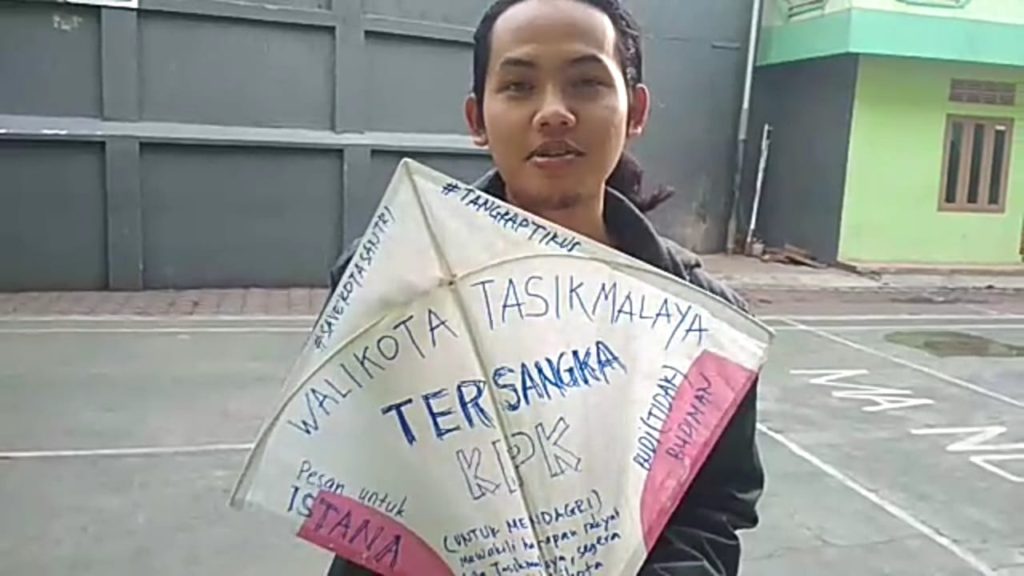 #TANGKAPTIKUS
#SAVEKOTASANTRI
WALIKOTA TASIKMALAYA
TERSANGKA
KPK
BUDI (TIDAK)
BUDIMAN
Pesan untuk
ISTANA
(UNTUK MENDAGRI)
mewakili harapan rakyat
Tasikmalaya, segera
NA